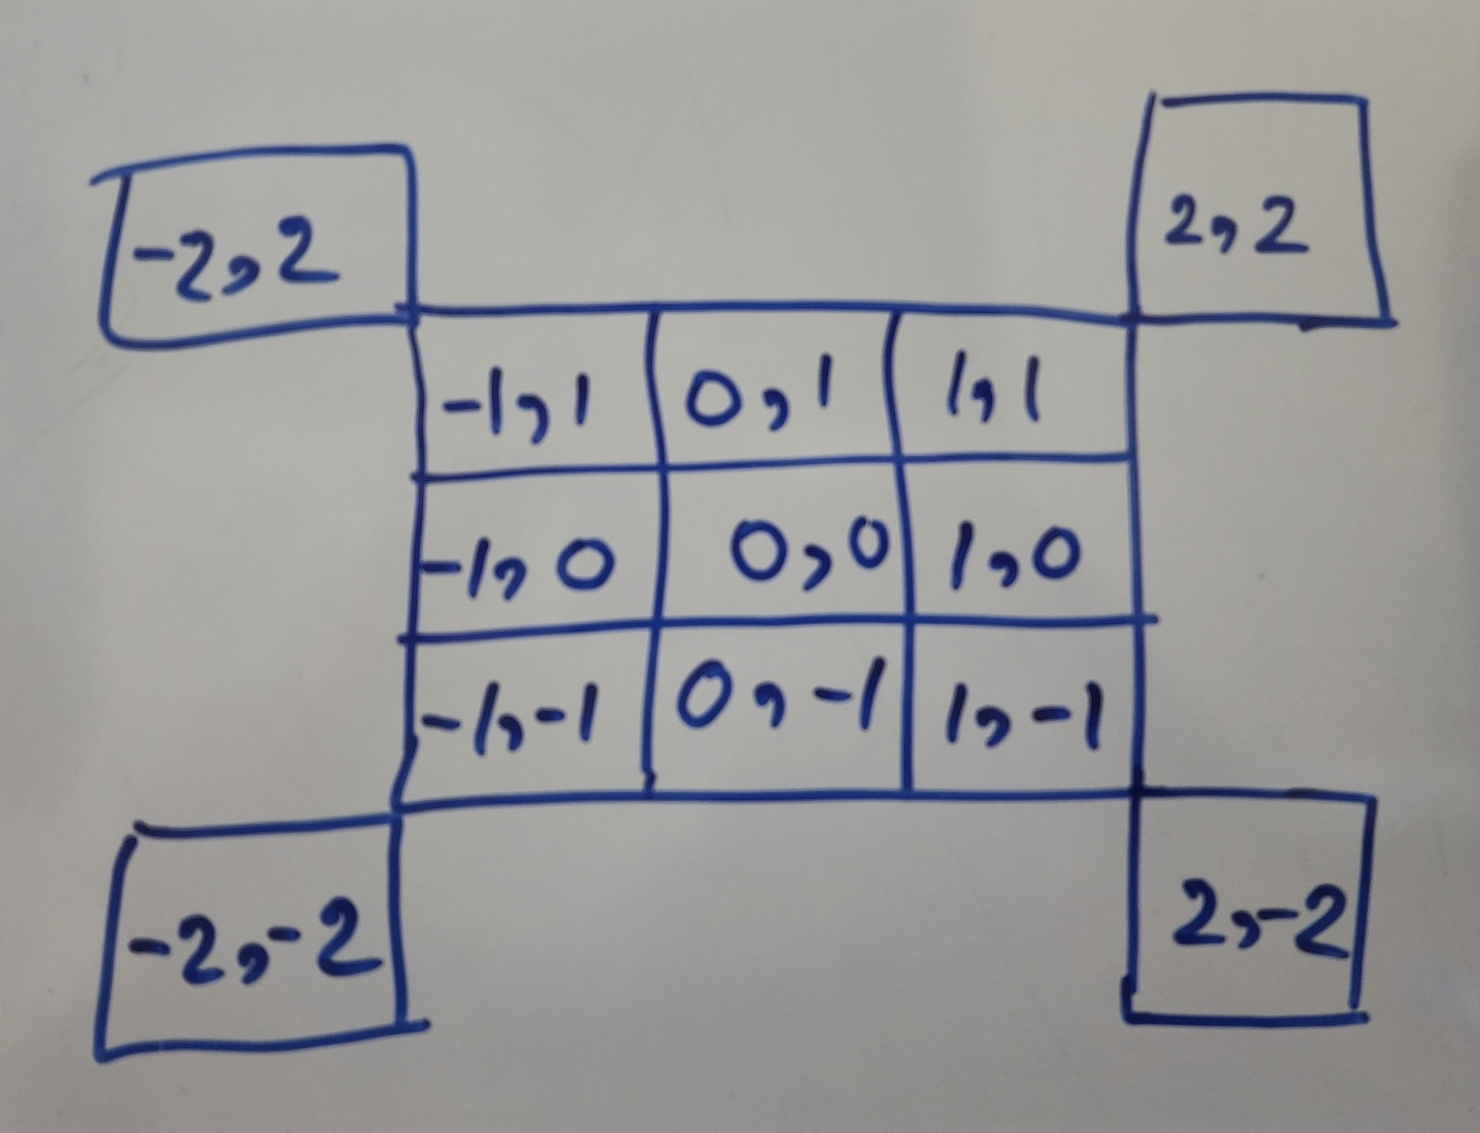 -2,2 2,2
-1,1 0,1 1,1
-1,0 0,0 1,0
-1,-1 0,-1 1,-1
-2,-2 2,-2